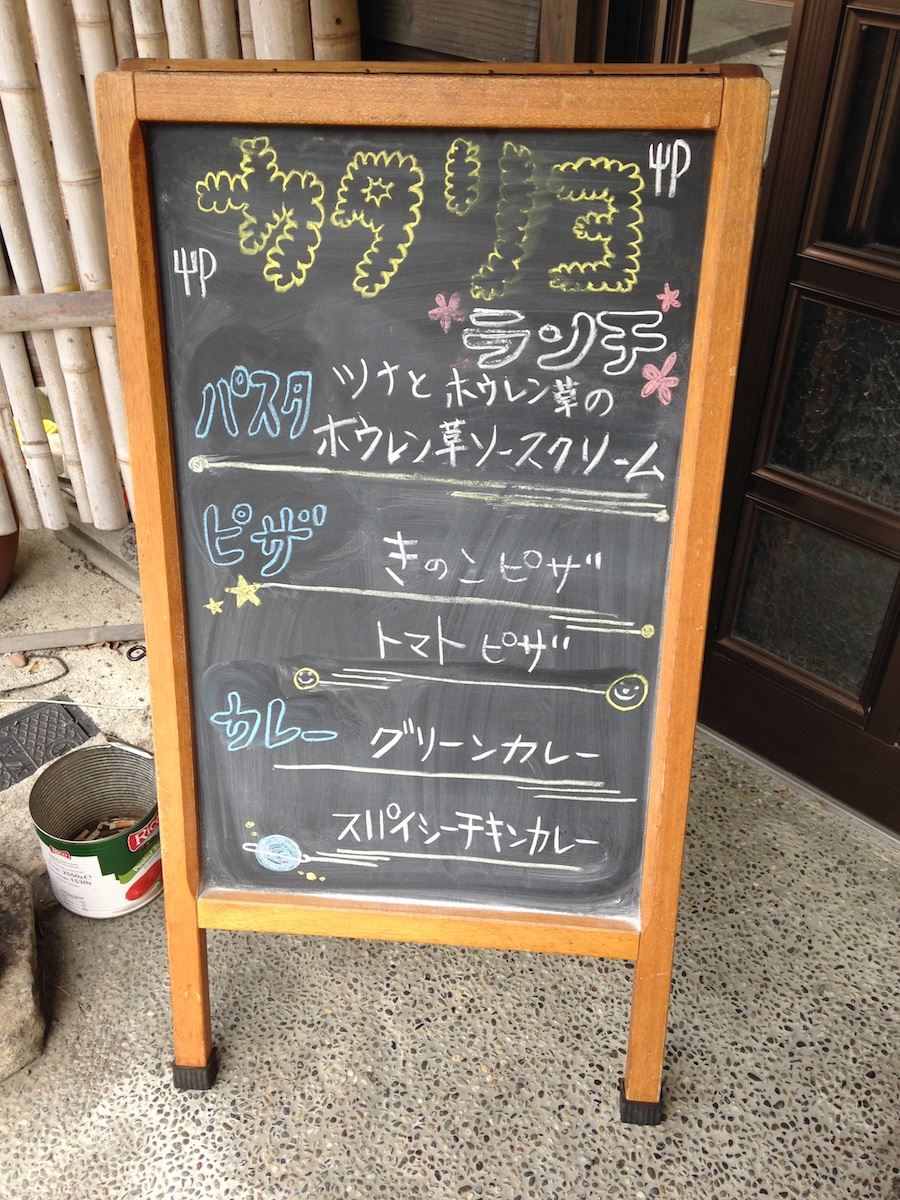 カタリヨ
ランチ
パスタ
ツナとホウレン草の
ホウレン草ソースクリーム
ピザ
きのこピザ
トマトピザ
カレー
グリーンカレー
スパイシーチキンカレー
2550g℮
1530g